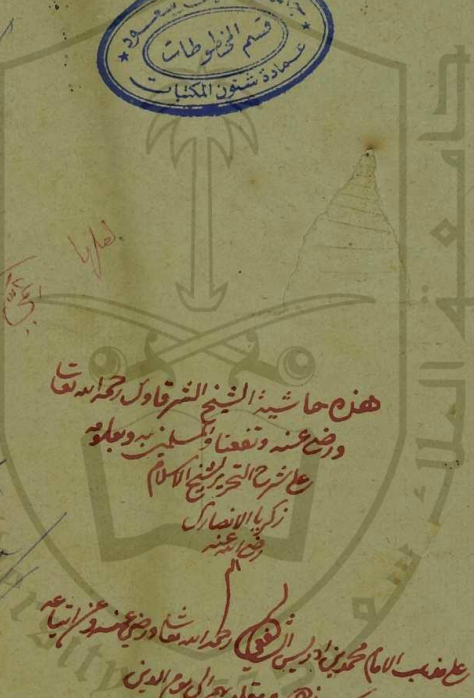 جامعة الملك سعود
قسم المخطوطات
عمادة شئون المكتبات
هذه حاشية الشيخ الشرقاوى رحمه الله تعا
ورضى عنه ونفعنا والمسلمين به وبعلومه
على شرح التحرير لشيخ الاسلام
زكريا الانصارى
رضى الله عنه
على مذهب الامام محمد بن ادريس الشافعى رحمه الله تعا ورضى عنه وعن اتباعه
الى يوم الدين
جامعة الملك
ersity